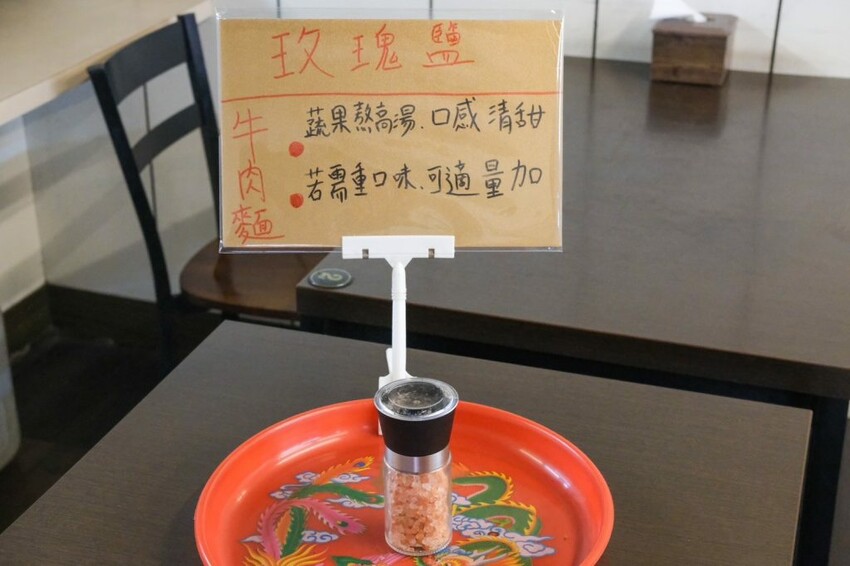 玫瑰鹽
牛肉麵
蔬果熬高湯.口感清甜
若需重口味.可適量加
2